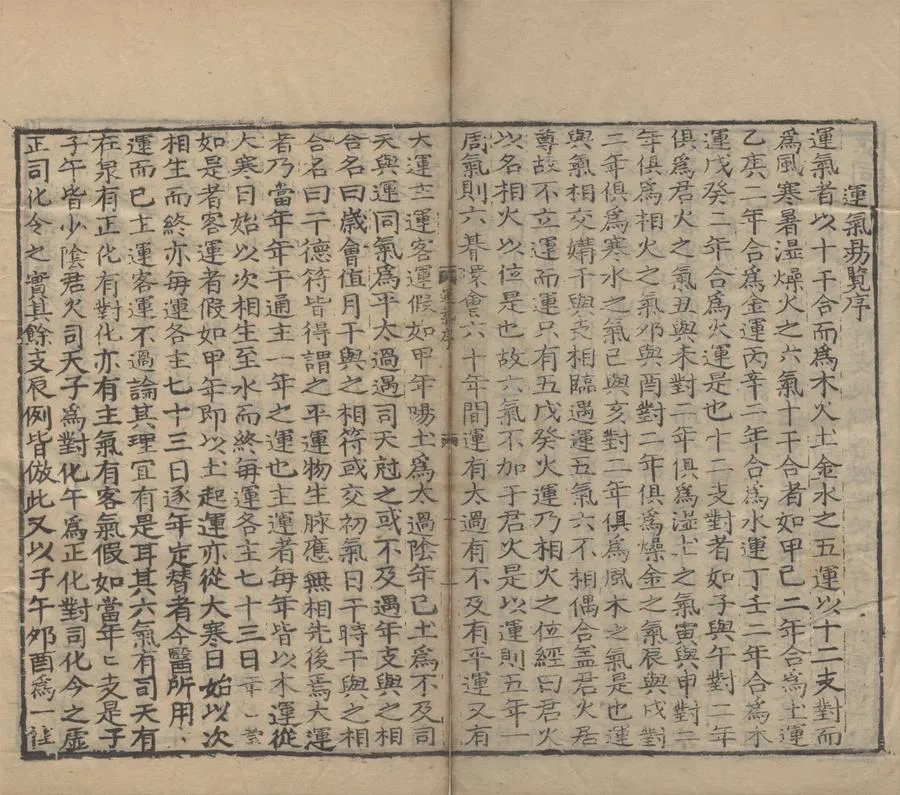 運氣易覽序
運氣者以十干合而為木火土金水之五運以十二支對而
為風寒暑濕燥火之六氣十干合者如甲己二年合為土運
乙庚二年合為金運丙辛二年合為水運丁壬二年合為木
運戊癸二年合為火運是也十二支對者如子與午對二年
俱為君火之氣丑與未對二年俱為濕土之氣寅與申對二
年俱為相火之氣卯與酉對二年俱為燥金之氣辰與戌對
二年俱為寒水之氣巳與亥對二年俱為風木之氣是也運
與氣相交媾干與支相臨遇運五氣六不相偶合盖君火居
尊故不立運而運只有五戊癸火運乃相火之位經曰君火
以名相火以位是也故六氣不加于君火是以運則五年一
周氣則六朞環會六十年間運有太過有不及有平運又有
大運主運客運假如甲年陽土為太過陰年己土為不及司
天與運同氣為平太過遇司天尅之或不及遇年支與之相
合名曰歲會值月干與之相符或交初氣日干時干與之相
合名曰干德符皆得謂之平運物生脉應無相先後焉大運
者乃當年年干通主一年之運也主運者每年皆以木運從
大寒日始以次相生至水而終每運各主七十三日零
如是者客運者假如甲年即以土起運亦從大寒日始以次
相生而終亦每運各主七十三日逐年定替者今醫所用
運而已主運客運不過論其理宜有是耳其六氣有司天有
在泉有正化有對化亦有主氣有客氣假如當年年支是子
子午皆少陰君火司天子為對化午為正化對司化令之虛
正司化令之實其餘支辰例皆倣此又以子午卯酉為一
運氣序